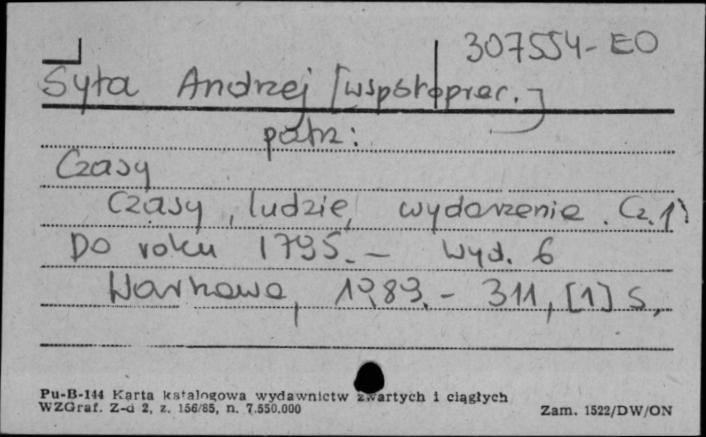 307554-EO
Syta Andrzej [współoprac.]
patrz:
Czasy
Czasy, ludzie, wydarzenia. Cz. 1:
Do roku 1795. - Wyd. 6
Warszawa, 1989. - 311, [1] s.
Pu-B-144 Karta katalogowa wydawnictw zwartych i ciągłych
WZGraf. Z-d 2, z. 156/85, n. 7.550.000
Zam. 1522/DW/ON